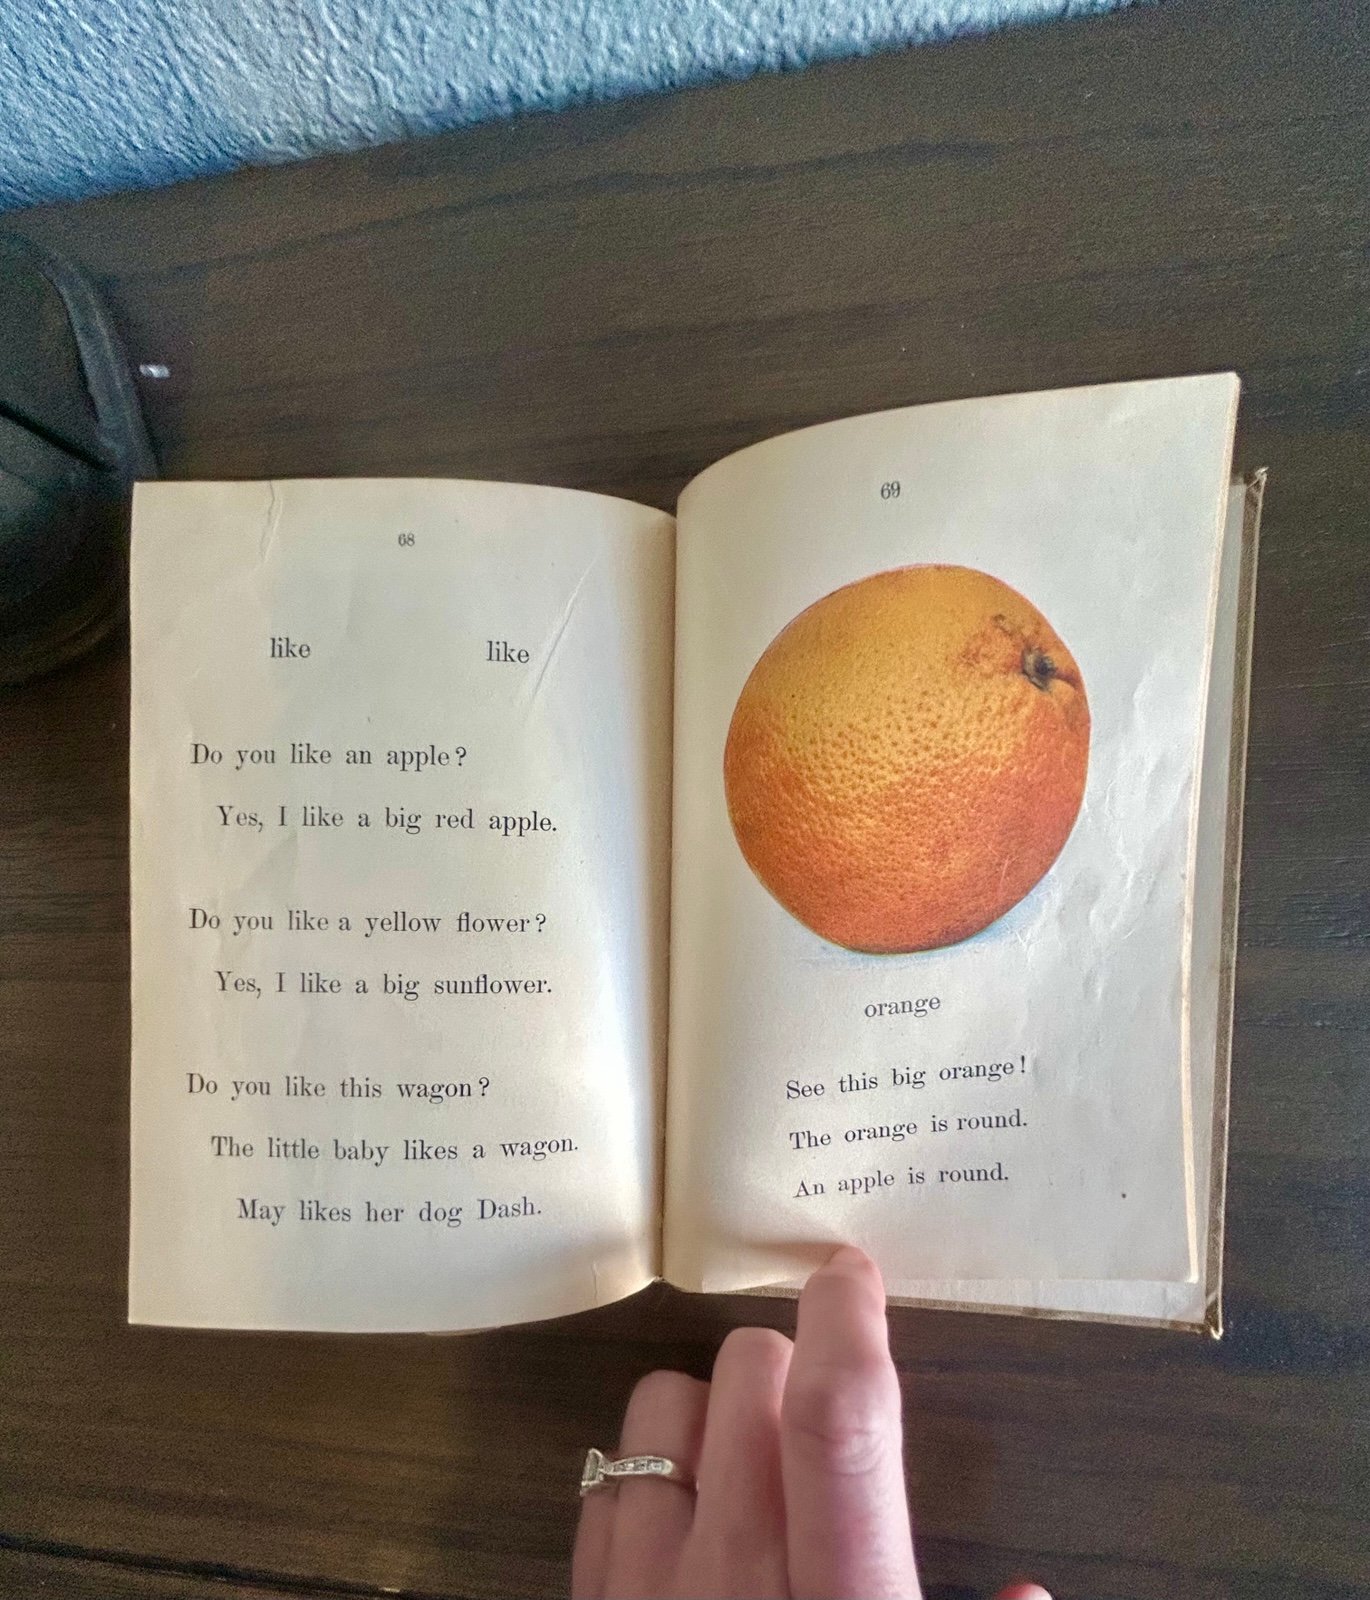 68
like like
Do you like an apple?
Yes, I like a big red apple.
Do you like a yellow flower?
Yes, I like a big sunflower.
Do you like this wagon?
The little baby likes a wagon.
May likes her dog Dash.
69
orange
See this big orange!
The orange is round.
An apple is round.